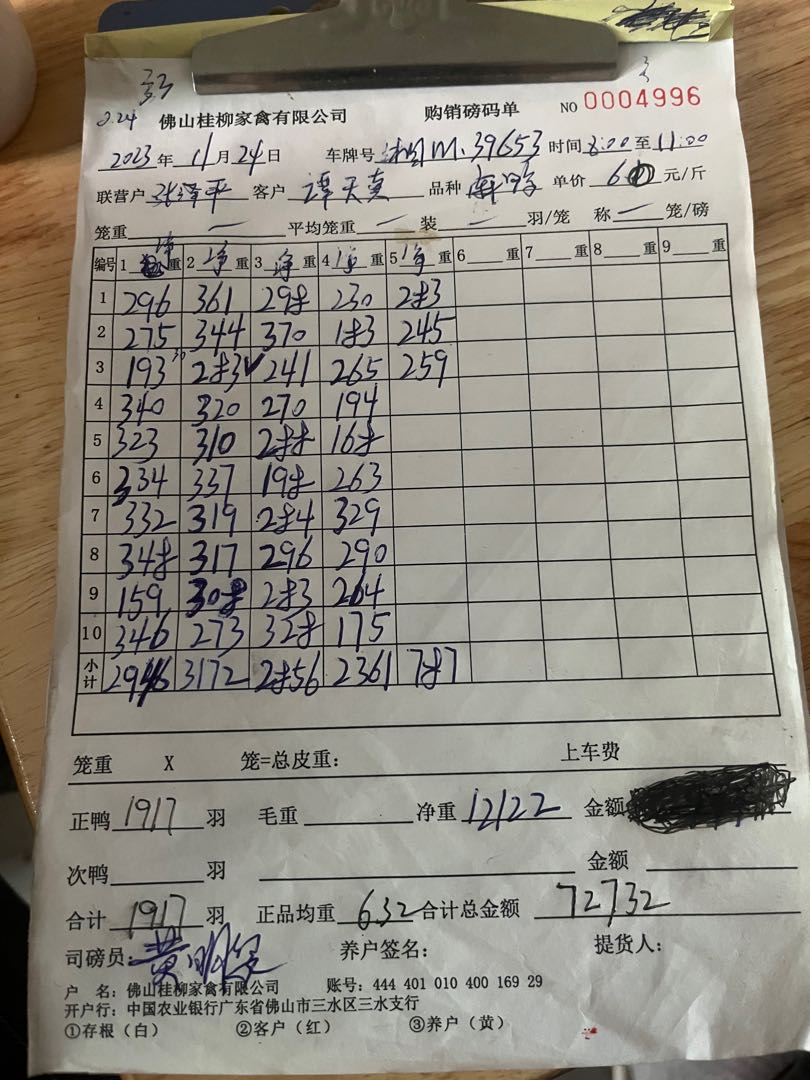 33
0.24 佛山桂柳家禽有限公司 购销磅码单 NO 0004996
2023年 11月 24日 车牌号 湘M.39653 时间 8:00 至 11:00
联营户 张泽平 客户 谭天真 品种 单价 6.0 元/斤
笼重 一 平均笼重 一 装 一 羽/笼 称 一 笼/磅
编号 1 净重 2 净重 3 净重 4 净重 5 净重 6 重 7 重 8 重 9 重
1 296 361 298 230 283
2 275 344 370 183 245
3 193 283 241 265 259
4 340 320 270 194
5 323 310 288 168
6 334 337 198 263
7 332 319 284 329
8 348 317 296 290
9 159 308 283 264
10 346 273 328 175
小计 2946 3172 2856 2361 787
笼重 X 笼=总皮重： 上车费
正鸭 1917 羽 毛重 净重 12122 金额
次鸭 羽 金额
合计 1917 羽 正品均重 6.32 合计总金额 72732
司磅员： 养户签名： 提货人：
户 名：佛山桂柳家禽有限公司 账号：444 401 010 400 169 29
开户行：中国农业银行广东省佛山市三水区三水支行
①存根（白） ②客户（红） ③养户（黄）